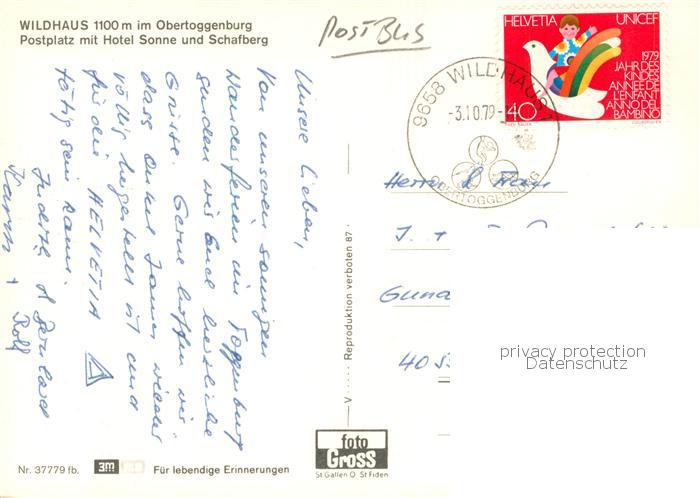 WILDHAUS 1100 m im Obertoggenburg
Postplatz mit Hotel Sonne und Schafberg
POSTBUS
HELVETIA UNICEF
1979
JAHR DES
KINDES
ANNEE DE
L'ENFANT
ANNO DEL
BAMBINO
40
9658 WILDHAUS
-3.10.79-
OBERTOGGENBURG
Unsere Lieben,
Von unseren sonnigen
Wanderferien im Toggenburg
senden wir Euch herzliche
Grüsse. Gerne hoffen wir
dass Onkel James wieder
völlig hergestellt ist und
für die HELVETIA
tätig sein kann.
Judith & Bernhard
Karin + Rolf
Herrn & Frau
J. +
40
V ..... Reproduktion verboten 87
privacy protection
Datenschutz
foto
Gross
St Gallen O. St Fiden
Nr. 37779 fb. 3m Für lebendige Erinnerungen